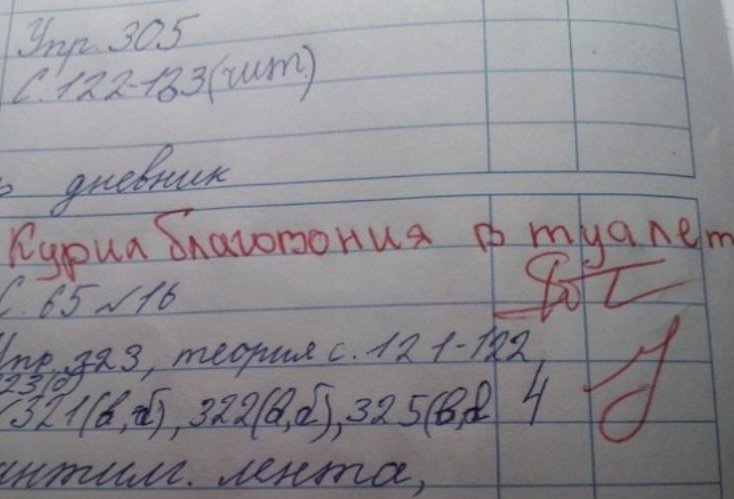 Упр. 305
С. 122-123 (чит)
дневник
Курил благовония в туалет
С. 65 №16
Упр. 323, теория с. 121-122,
321(в,г), 322(в,г), 325(в,г 4
лента,